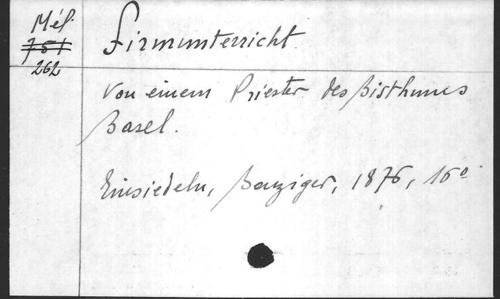 Mél.
751
262
Firmunterricht.
Von einem Priester des Bisthums
Basel.
Einsiedeln, Benziger, 1876, 16°